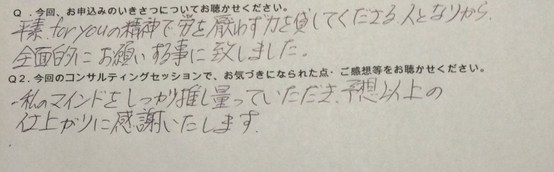 Q．今回、お申込みのいきさつについてお聴かせください。
平素、for youの精神で労を厭わず力を貸してくださる人となりから、
全面的にお願いする事に致しました。
Q２．今回のコンサルティングセッションで、お気づきになられた点・ご感想等をお聴かせください。
私のマインドをしっかり推し量っていただき、予想以上の
仕上がりに感謝いたします。